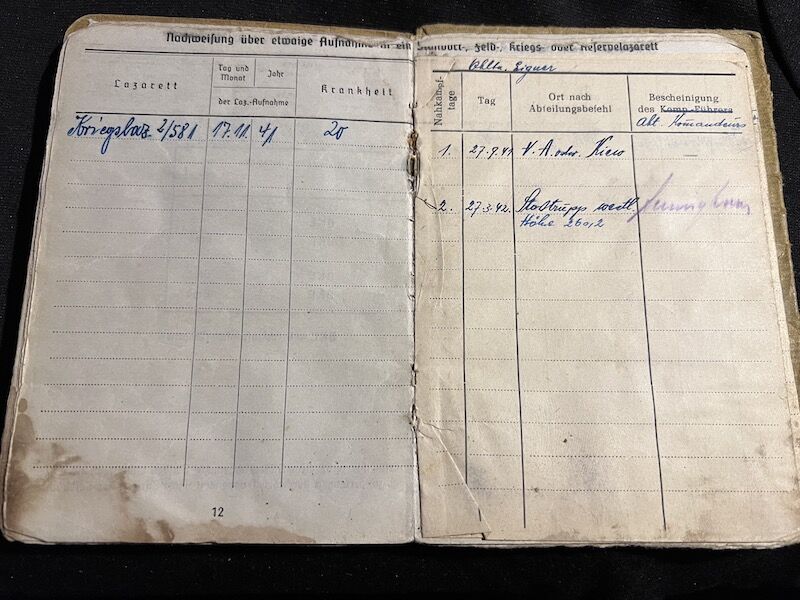 Nachweisung über etwaige Aufnahme in ein Standort-, Feld-, Kriegs- oder Reservelazarett
Lazarett
Tag und Monat
Jahr
der Laz.-Aufnahme
Krankheit
Kriegslaz. 2/581 17.11. 41 20
12
Nahkampf-
tage
Tag
Ort nach
Abteilungsbefehl
Bescheinigung
des Komp.-Führers
Abt. Komandeurs
1. 27.9.41 Kiew —
2. 27.3.42. Stoßtrupp westl.
Höhe 260,2